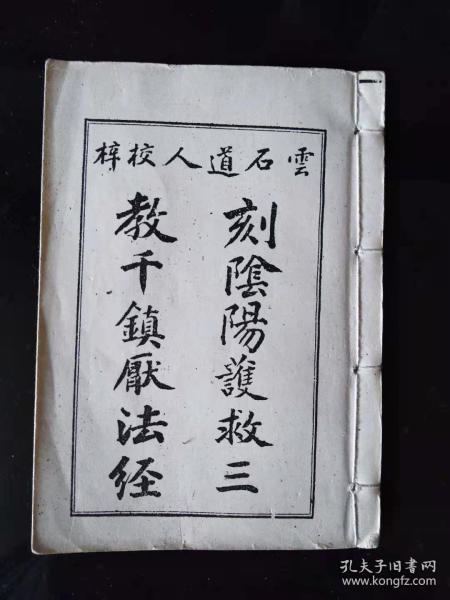 雲石道人校梓
刻陰陽護救三
教千鎮厭法经
孔夫子旧书网
www.kongfz.com